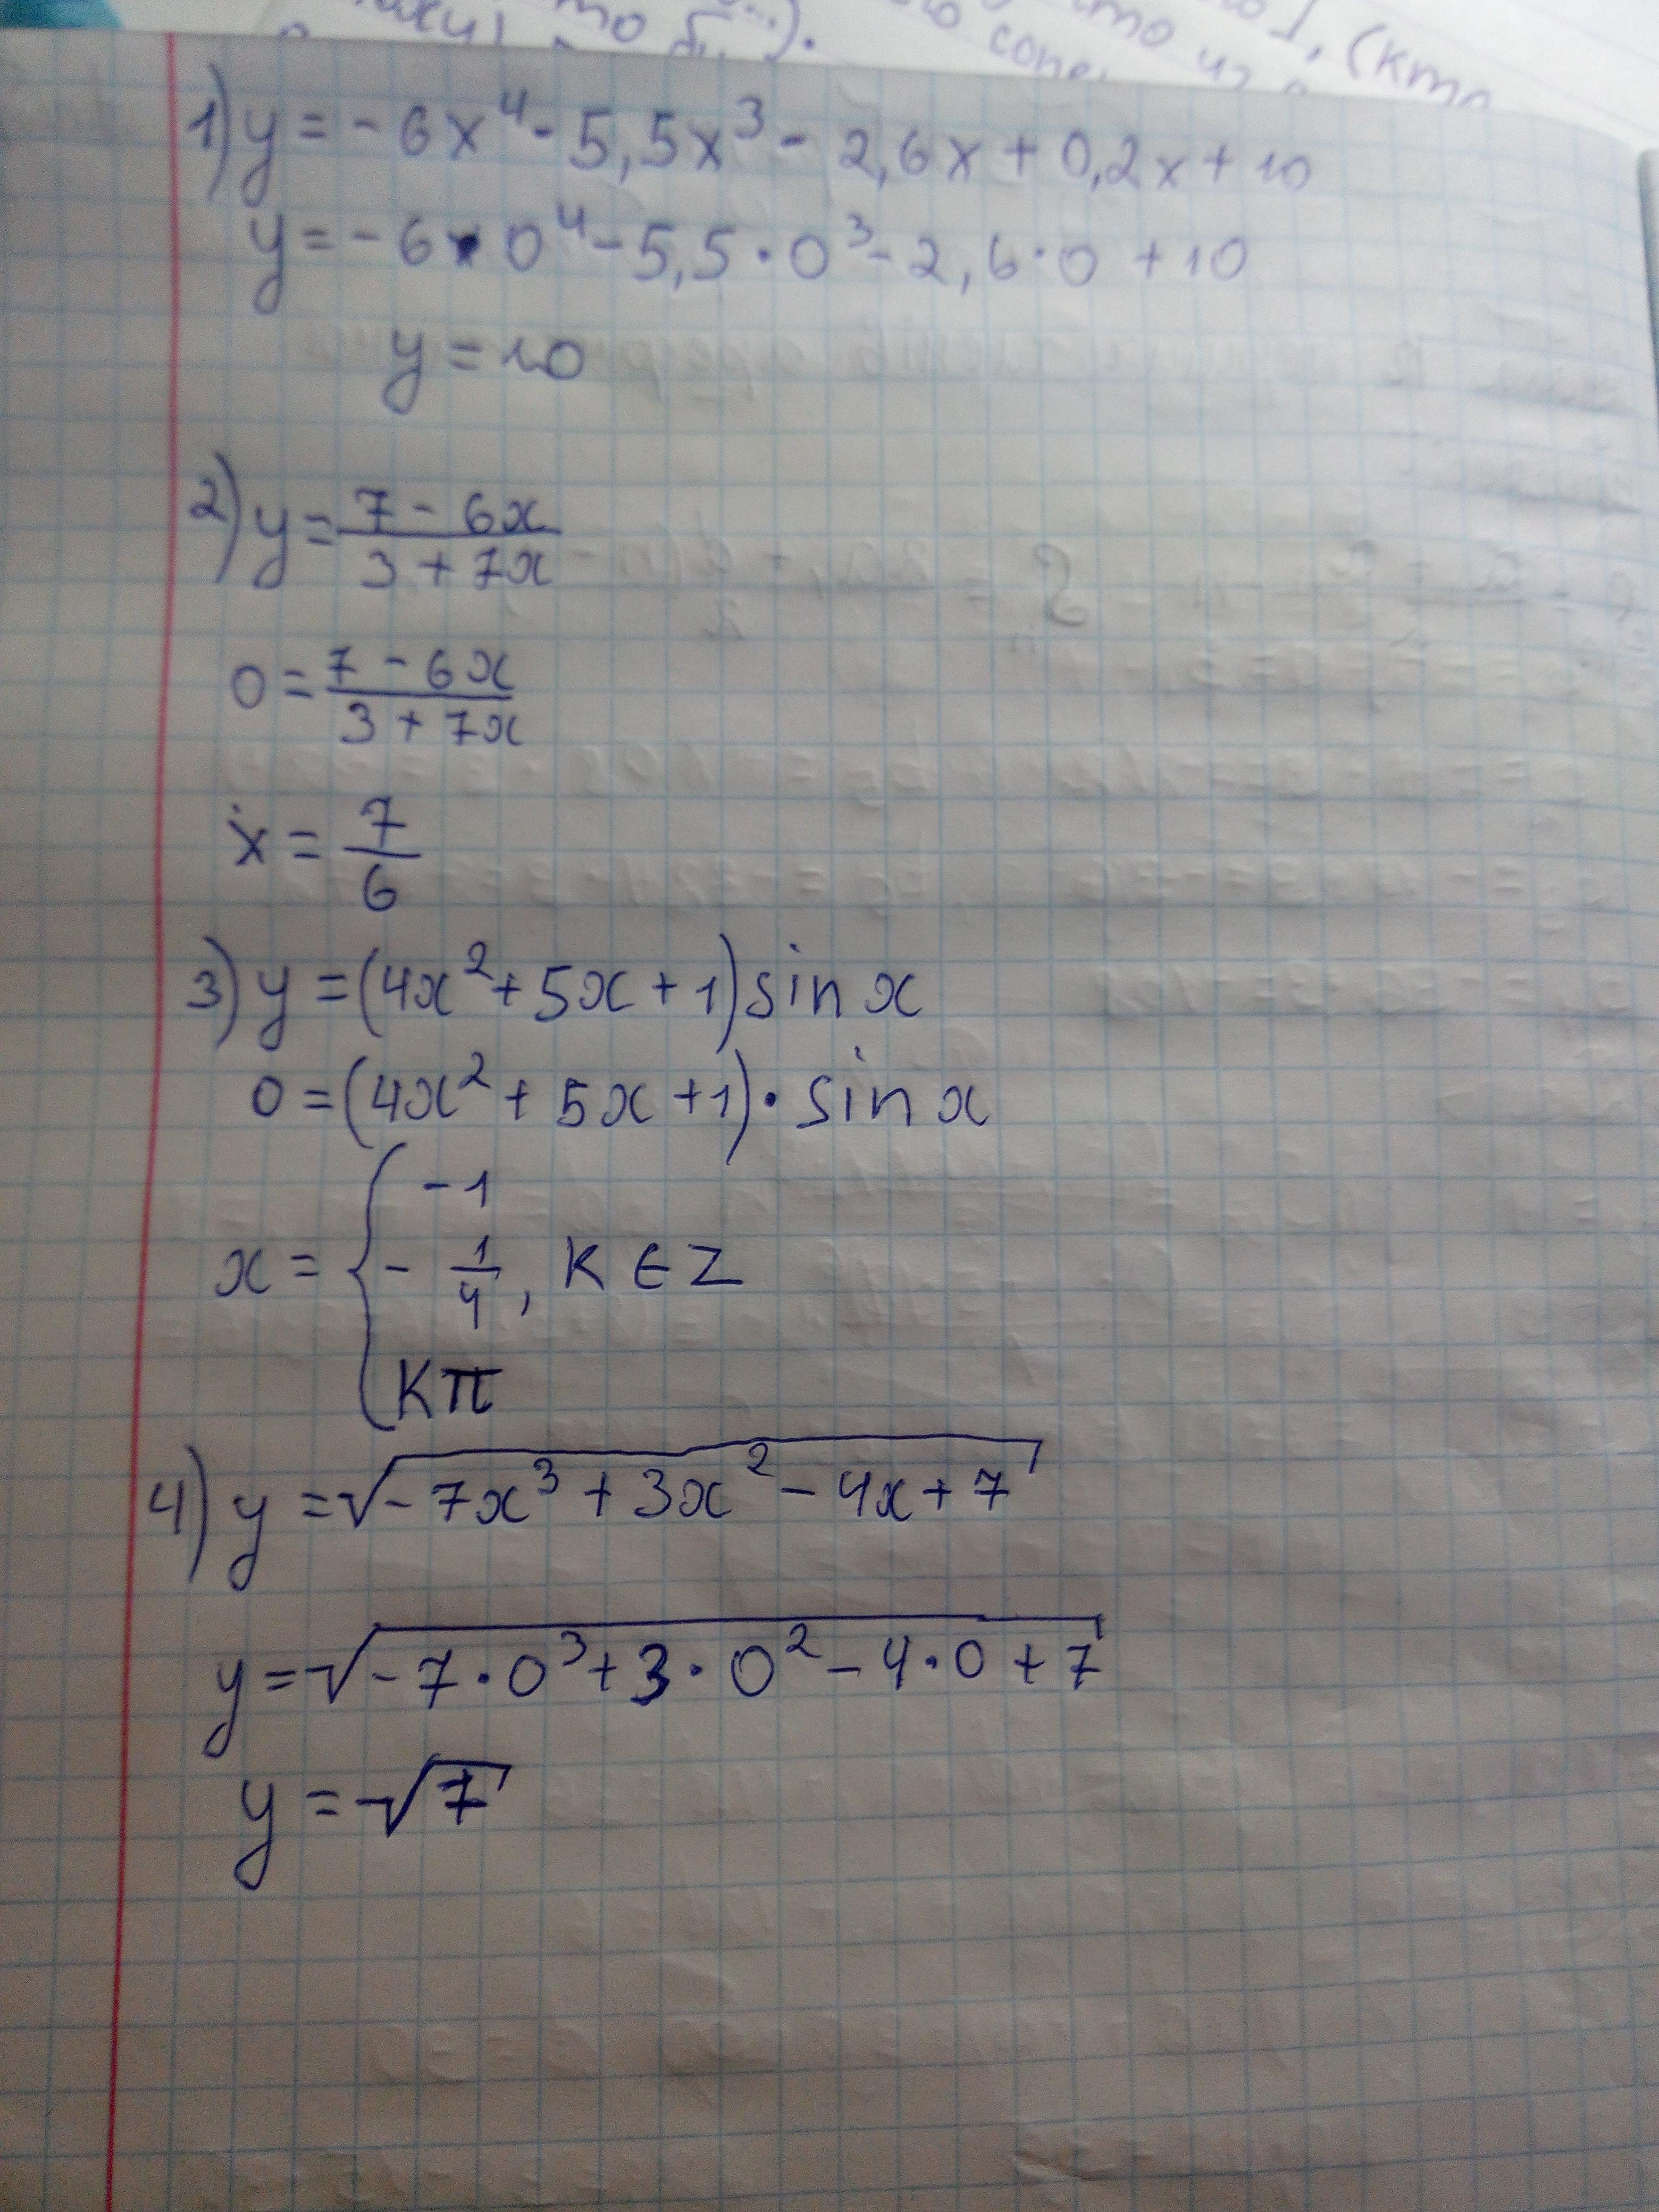 то б... ...).
, (кто
1) y = -6x⁴ - 5,5x³ - 2,6x + 0,2x + 10
y = -6 · 0⁴ - 5,5 · 0³ - 2,6 · 0 + 10
y = 10
2) y = (7 - 6x)/(3 + 7x)
0 = (7 - 6x)/(3 + 7x)
x = 7/6
3) y = (4x² + 5x + 1) sin x
0 = (4x² + 5x + 1) · sin x
x = { -1
- 1/4, K ∈ Z
Kπ
4) y = √(-7x³ + 3x² - 4x + 7)
y = √(-7 · 0³ + 3 · 0² - 4 · 0 + 7)
y = √7